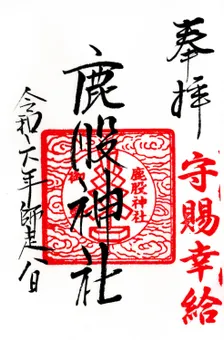 奉拝
守賜幸給
鹿股神社
鹿股神社
令和六年師走八日